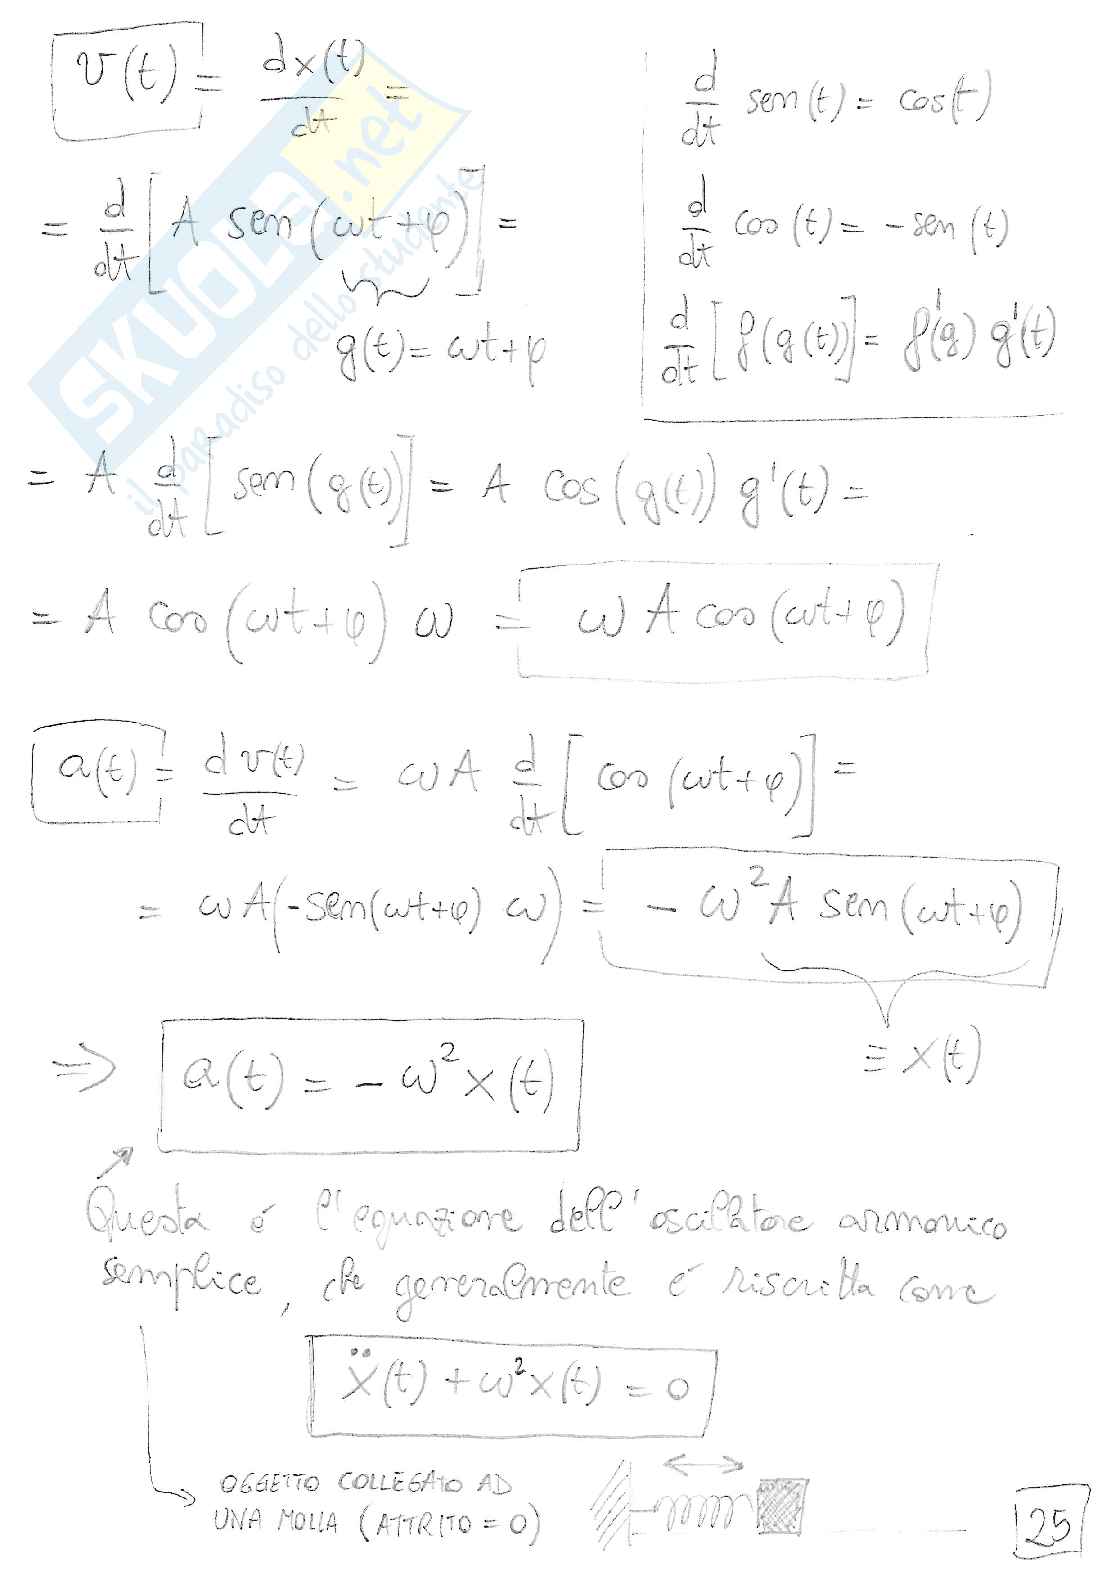 v(t) = dx(t)/dt =
= d/dt [A sen(ωt+φ)] =
g(t) = ωt+φ
d/dt sen(t) = cos(t)
d/dt cos(t) = -sen(t)
d/dt [f(g(t))] = f'(g) g'(t)
= A d/dt [sen(g(t))] = A cos(g(t)) g'(t) =
= A cos(ωt+φ) ω = ω A cos(ωt+φ)
a(t) = dv(t)/dt = ωA d/dt [cos(ωt+φ)] =
= ωA(-sen(ωt+φ) ω) = - ω²A sen(ωt+φ)
≡ x(t)
⇒ a(t) = - ω² x(t)
Questa é l'equazione dell'oscillatore armonico
semplice, che generalmente é riscritta come
ẍ(t) + ω²x(t) = 0
OGGETTO COLLEGATO AD
UNA MOLLA (ATTRITO = 0)
25
SKUOLA.net
il paradiso dello studente